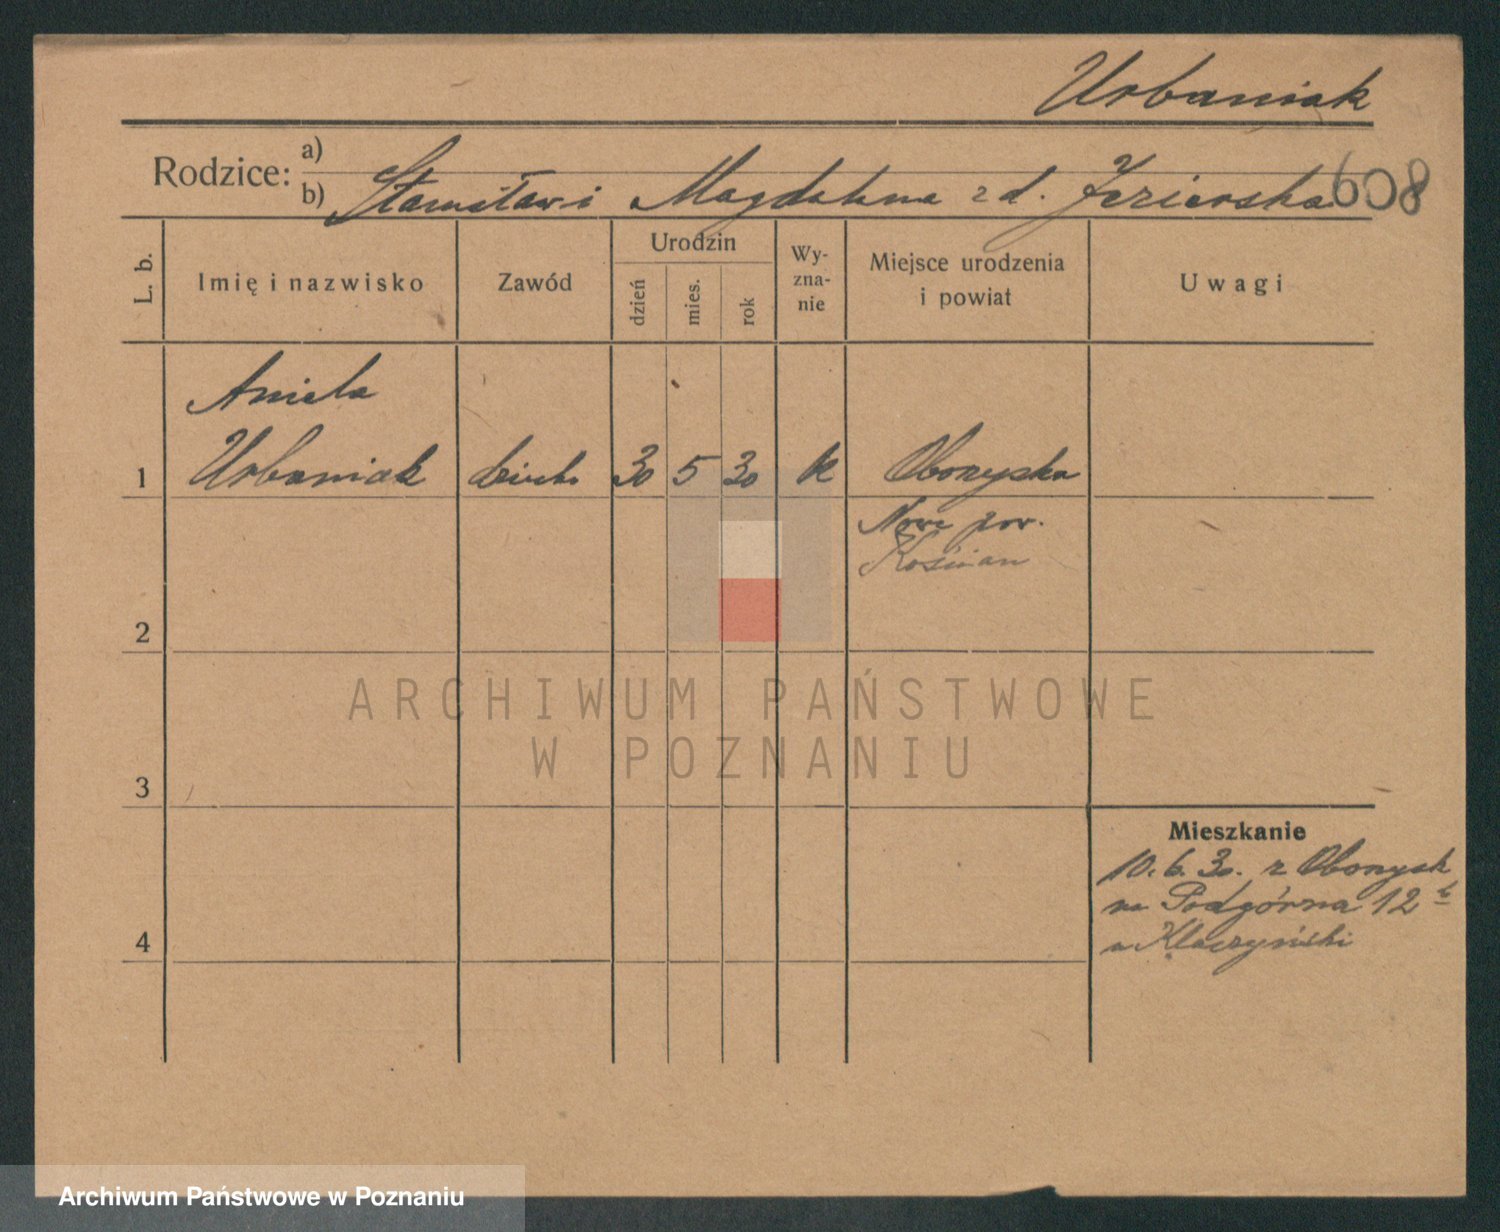 Urbaniak
Rodzice: a)
b) Stanisław i Magdalena z d. Jezierska 608
L. b.
Imię i nazwisko
Zawód
Urodzin
dzień
mies.
rok
Wy-
zna-
nie
Miejsce urodzenia
i powiat
Uwagi
Aniela
1 Urbaniak 30 5 30 k
Nowe pow.
Kościan
2
3
4
Mieszkanie
10. 6. 30. z
na Podgórna 12
ARCHIWUM PAŃSTWOWE
W POZNANIU
Archiwum Państwowe w Poznaniu